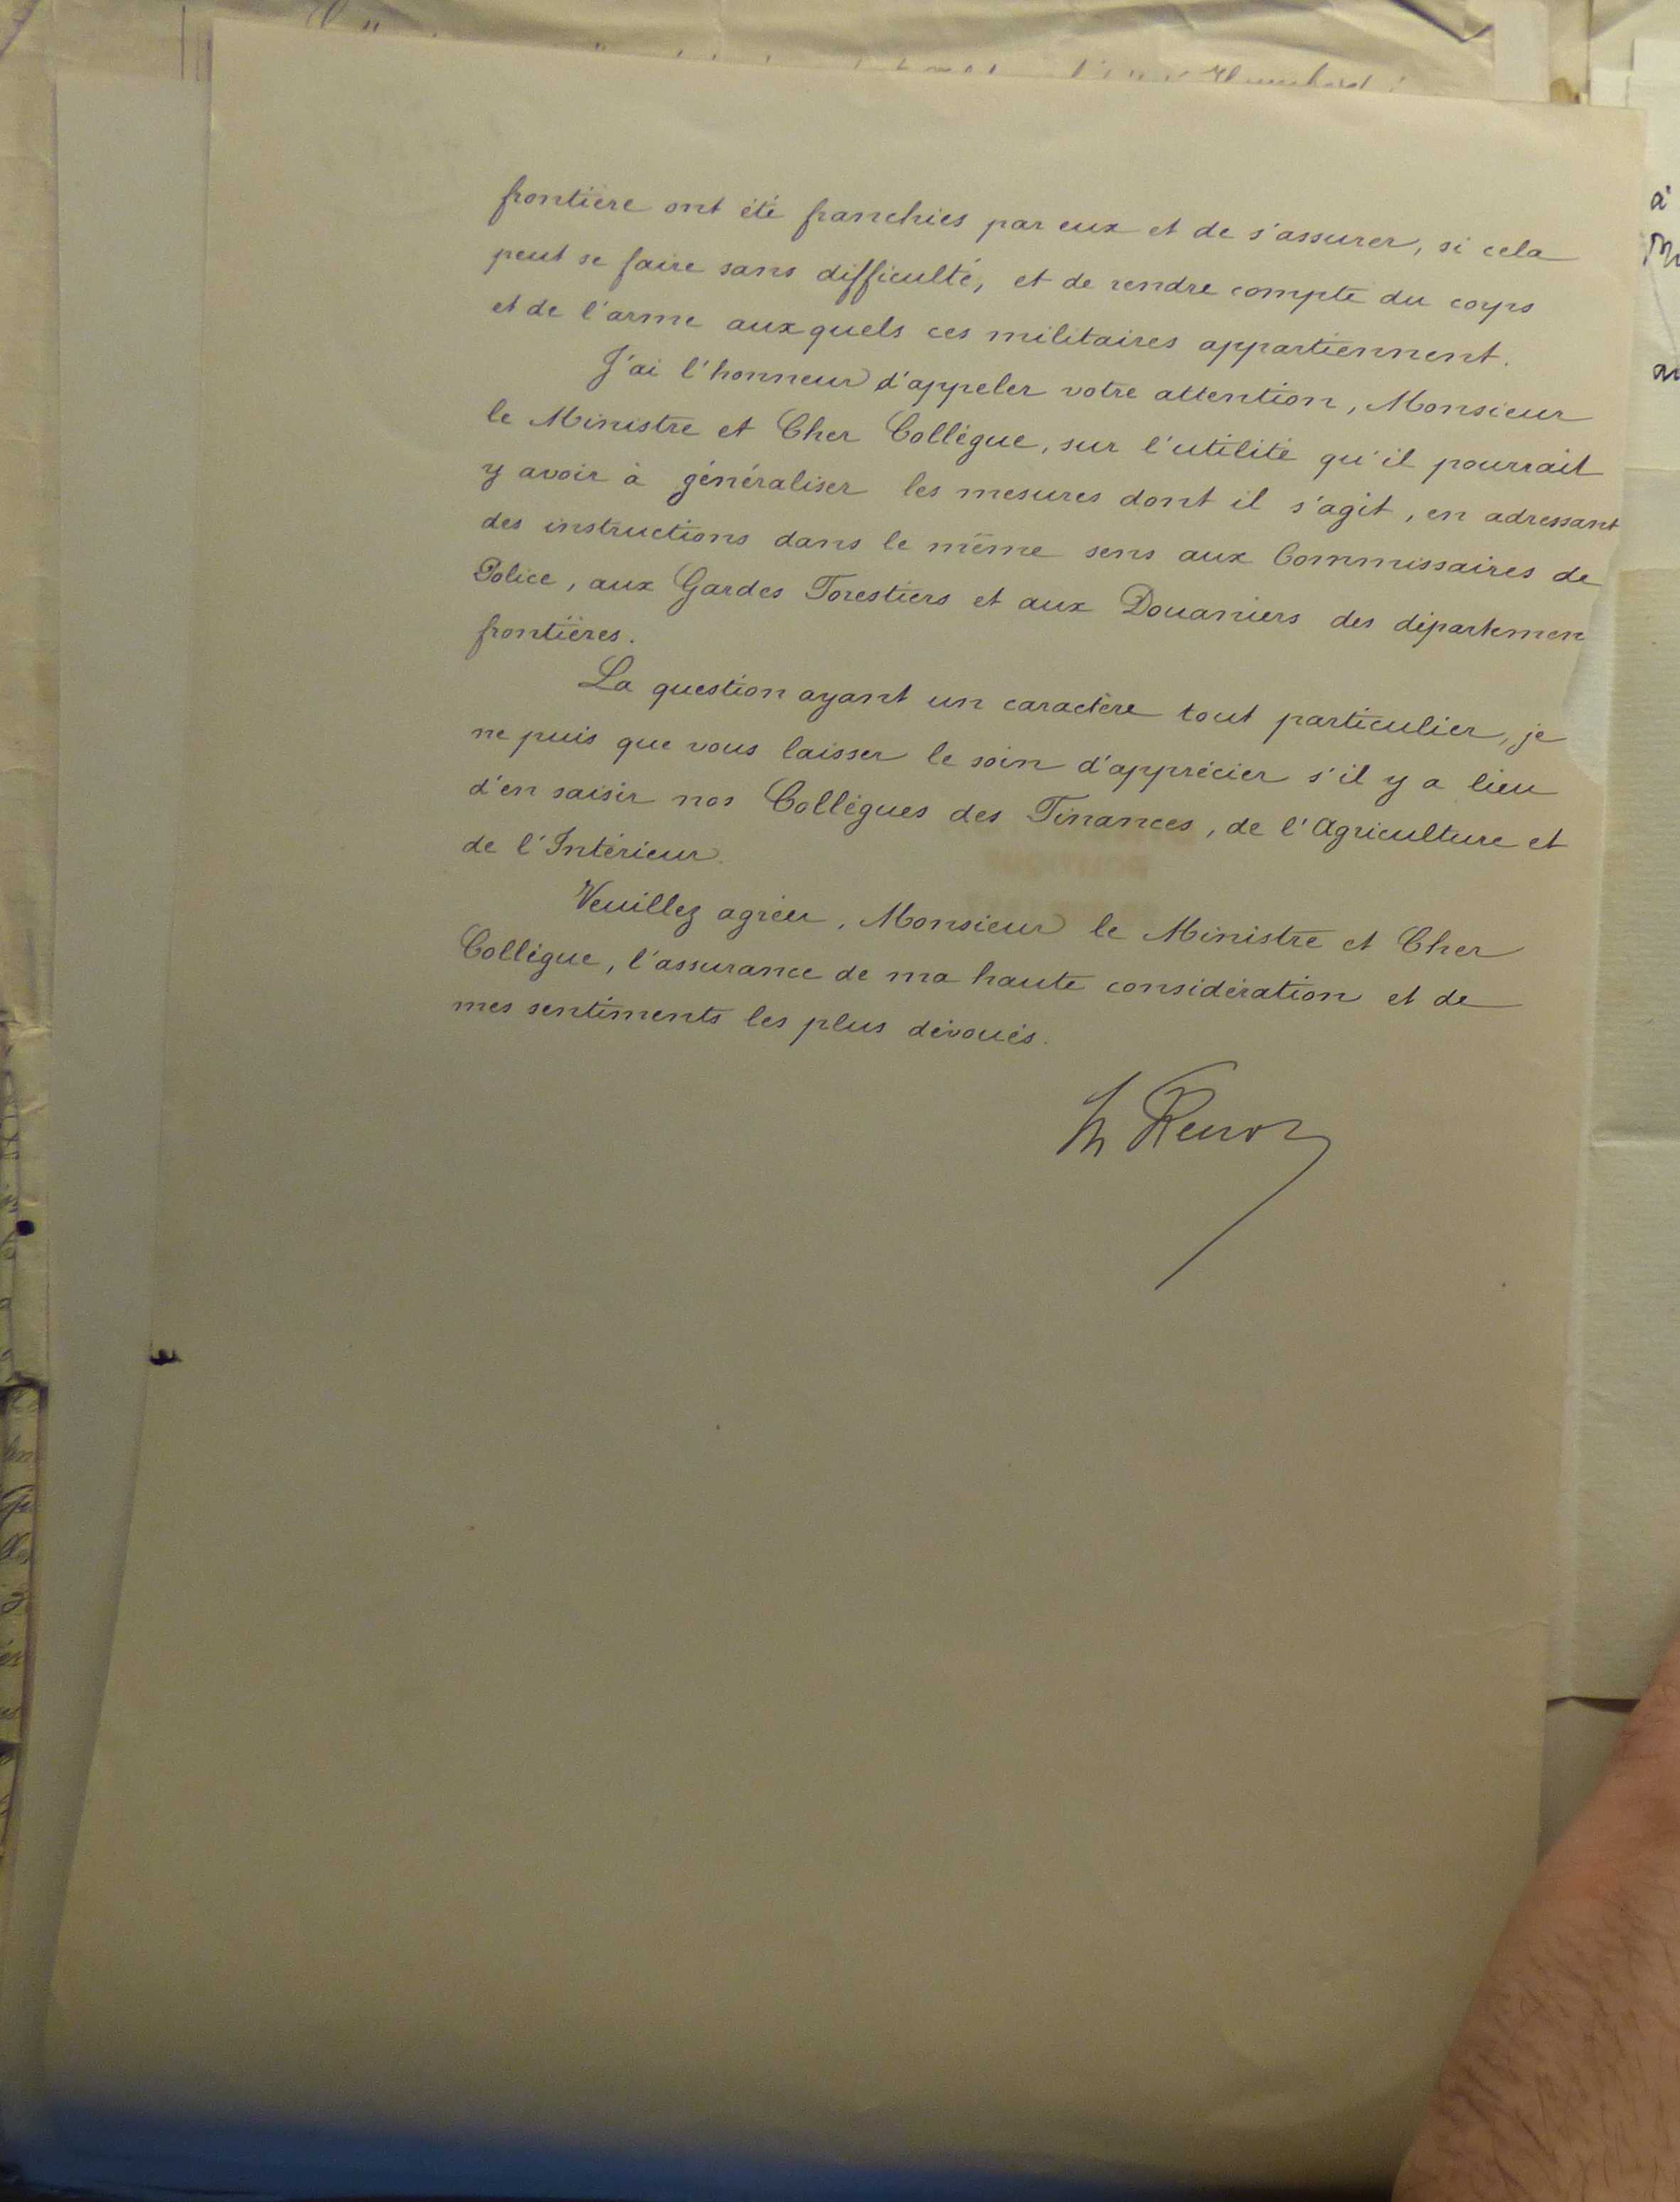 frontière ont été franchies par eux et de s'assurer, si cela
peut se faire sans difficulté, et de rendre compte du corps
et de l'arme auxquels ces militaires appartiennent.
J'ai l'honneur d'appeler votre attention, Monsieur
le Ministre et Cher Collègue, sur l'utilité qu'il pourrait
y avoir à généraliser les mesures dont il s'agit, en adressant
des instructions dans le même sens aux Commissaires de
Police, aux Gardes Forestiers et aux Douaniers des départemen
frontières.
La question ayant un caractère tout particulier, je
ne puis que vous laisser le soin d'apprécier s'il y a lieu
d'en saisir nos Collègues des Finances, de l'Agriculture et
de l'Intérieur.
Veuillez agréer, Monsieur le Ministre et Cher
Collègue, l'assurance de ma haute considération et de
mes sentiments les plus dévoués.
à